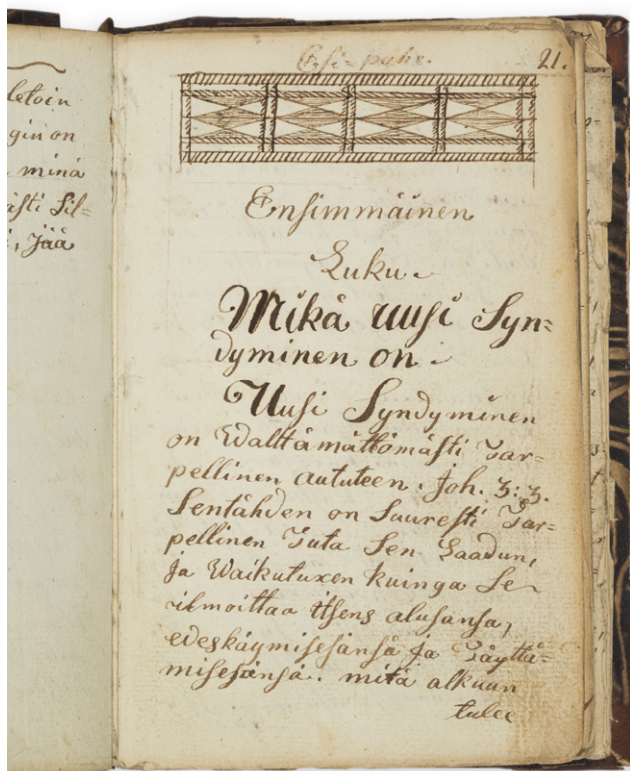 letoin
gin on
minä
ästi Sil=
i, Jää
Esi=puhe. 21.
Ensimmäinen
Luku.
Mikä uusi Syn=
dyminen on.
Uusi Syndyminen
on Walttämättömästi Tar=
pellinen aututeen. Joh. 3:3.
Sentähden on Suuresti Tar=
pellinen Tuta Sen Laadun,
ja Waikutuxen kuinga Se
ilmoittaa itsens alusansa,
edeskäymisesänsä ja Täyttä=
misesänsä. mitä alkuun
tulee